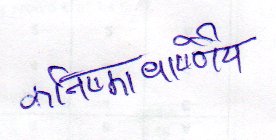 कनिष्का वार्ष्णेय